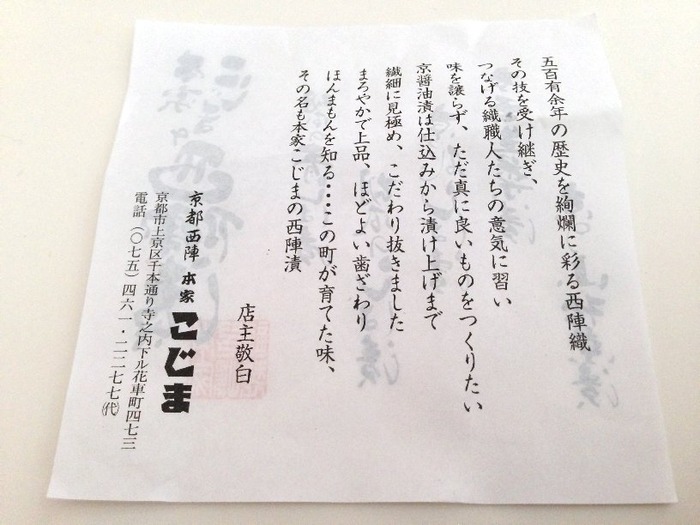 五百有余年の歴史を絢爛に彩る西陣織
その技を受け継ぎ、
つなげる織職人たちの意気に習い
味を譲らず、ただ真に良いものをつくりたい
京醤油漬は仕込みから漬け上げまで
繊細に見極め、こだわり抜きました
まろやかで上品、ほどよい歯ざわり
ほんまもんを知る・・・この町が育てた味、
その名も本家こじまの西陣漬
店主敬白
京都西陣 本家 こじま
京都市上京区千本通り寺之内下ル花車町四七三
電話(〇七五)四六一・二二七七㈹